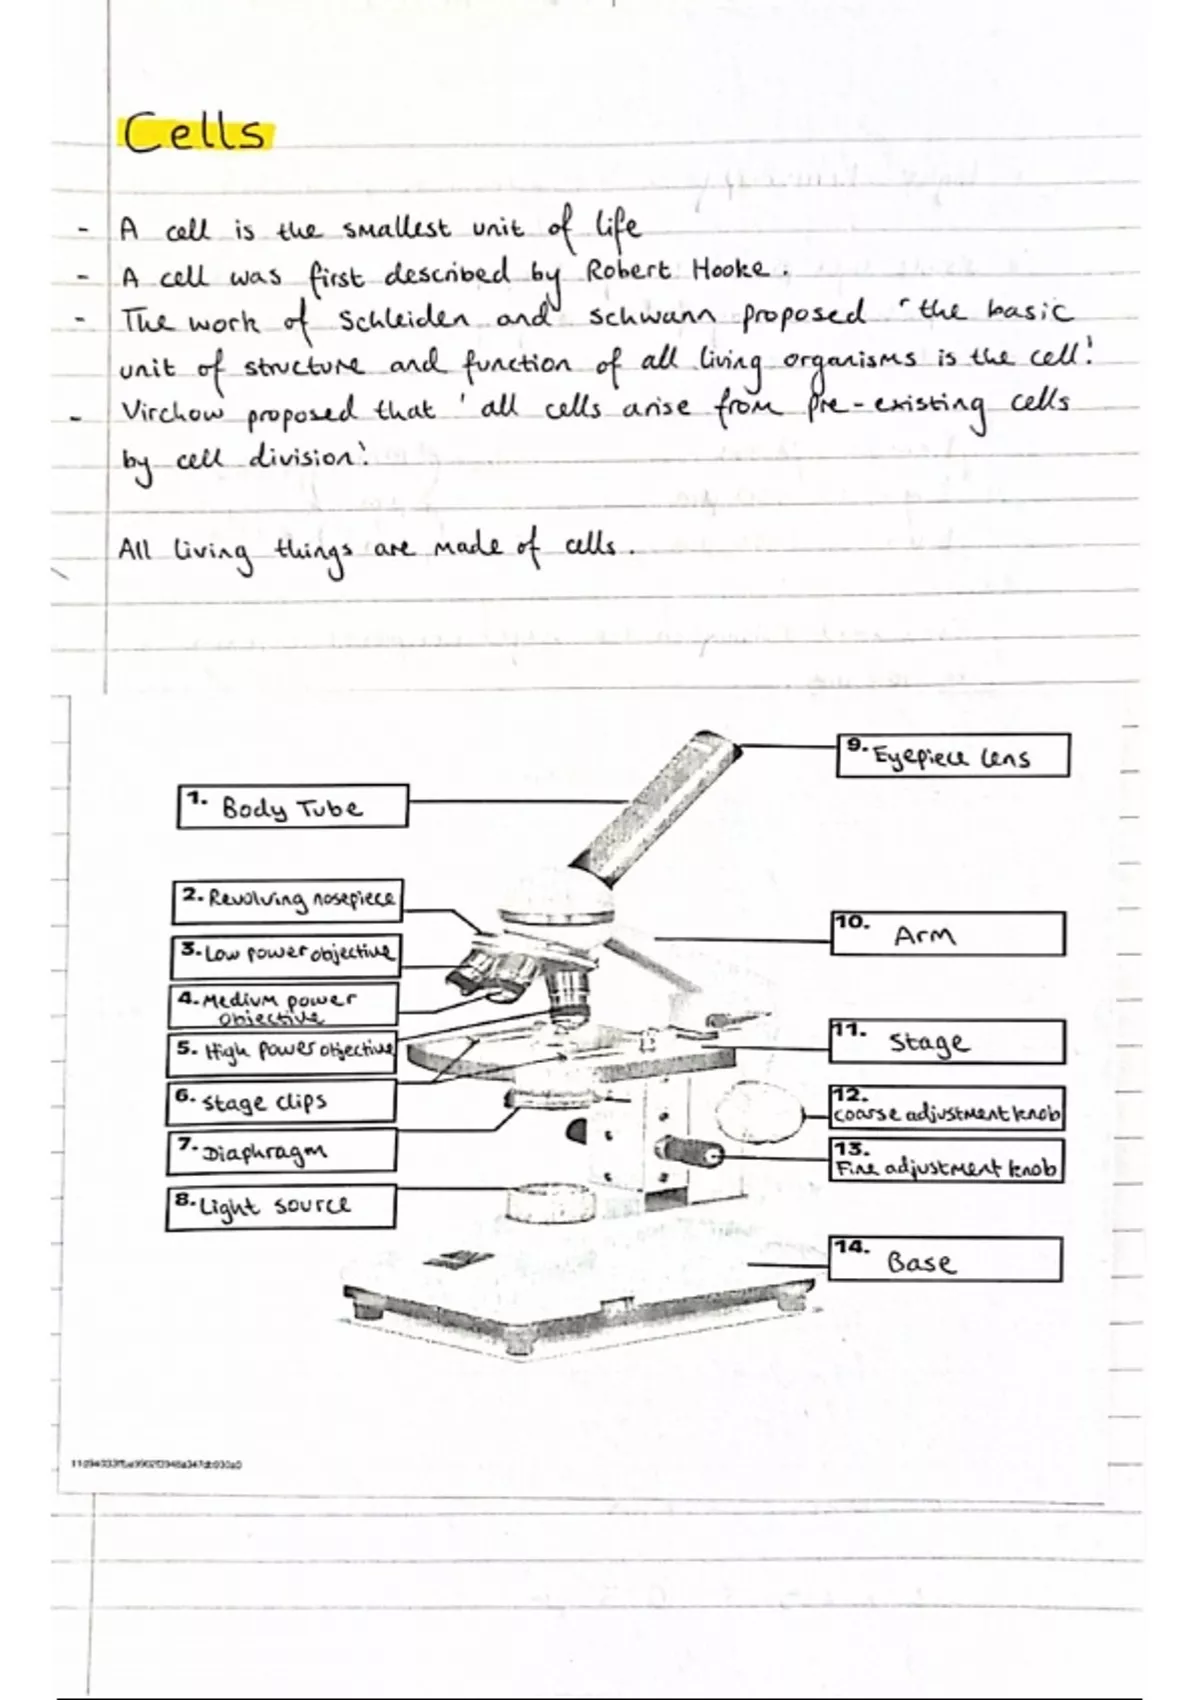 Cells
- A cell is the smallest unit of life
- A cell was first described by Robert Hooke.
- The work of Schleiden and Schwann proposed 'the basic
unit of structure and function of all living organisms is the cell'.
- Virchow proposed that 'all cells arise from pre-existing cells
by cell division'.
All living things are made of cells.
1. Body Tube
2. Revolving nosepiece
3. Low power objective
4. Medium power
objective
5. High power objective
6. Stage clips
7. Diaphragm
8. Light source
9. Eyepiece lens
10. Arm
11. Stage
12.
coarse adjustment knob
13.
Fine adjustment knob
14. Base